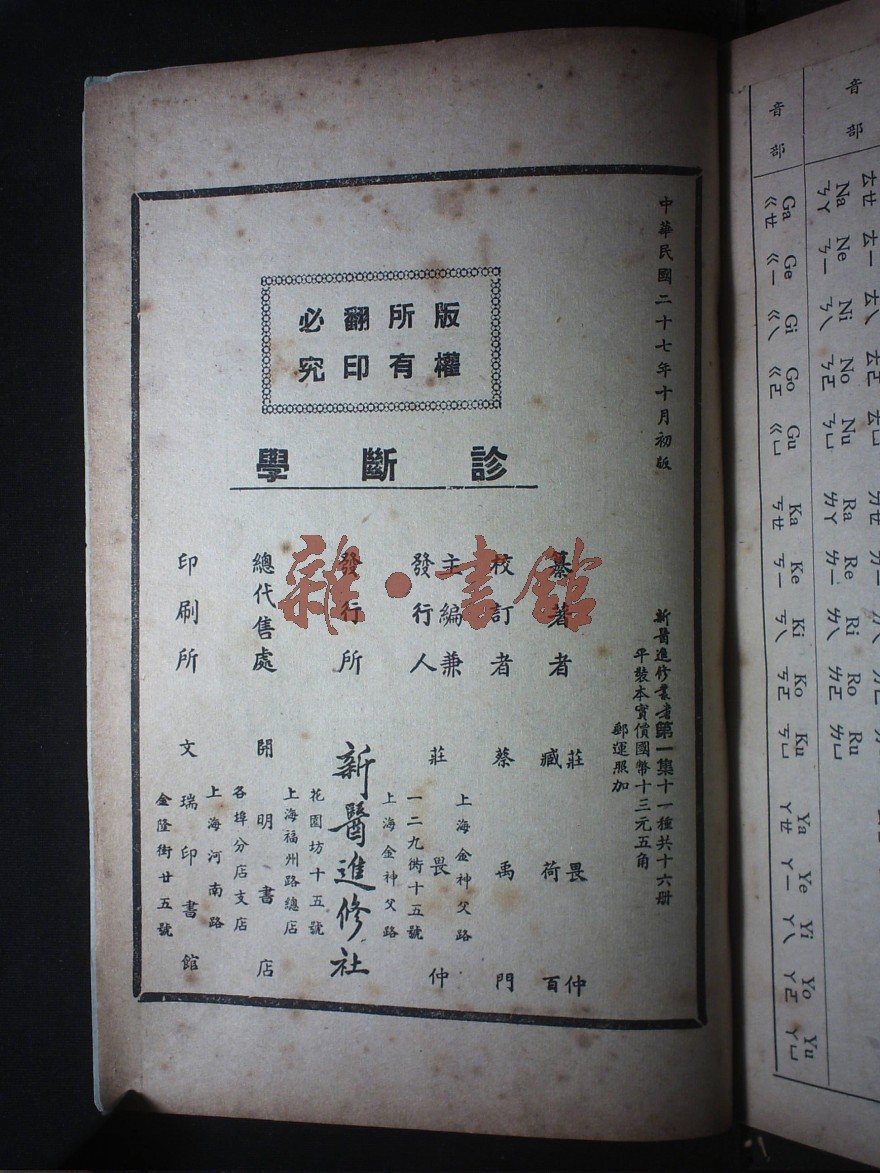 中華民國二十七年十月初版
新醫進修叢書第一集十一種共十六册
平裝本實價國幣十三元五角
郵運照加
版權
所有
翻印
必究
診斷學
纂著者 莊畏仲
臧荷百
校訂者 蔡禹門
主編兼
發行人 莊畏仲
上海金神父路
一二九衖十五號
發行所 新醫進修社
上海金神父路
花園坊十五號
總代售處 開明書店
上海福州路總店
各埠分店支店
印刷所 文瑞印書館
上海河南路
金隆街廿五號
雜·書館
音部
Na Ne Ni No Nu Ra Re Ri Ro Ru
ㄋㄚ ㄋㄧ ㄋㄟ ㄋㄛ ㄋㄩ
音部
Ga Ge Gi Go Gu Ka Ke Ki Ko Ku Ya Ye Yi Yo Yu